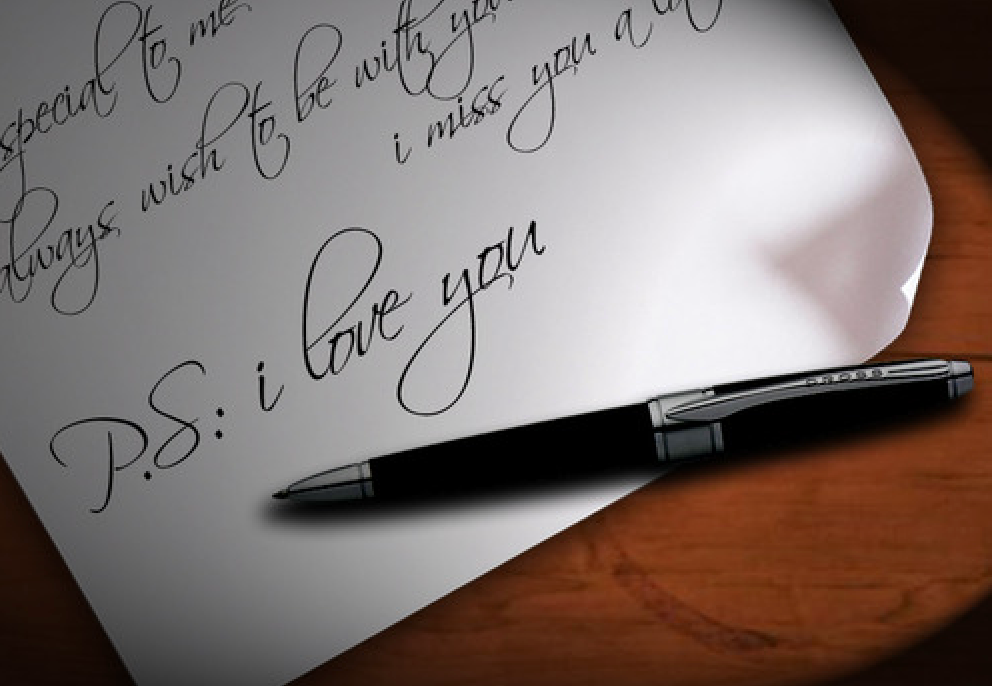 special to me
always wish to be with you
i miss you a
P.S: i love you
CROSS